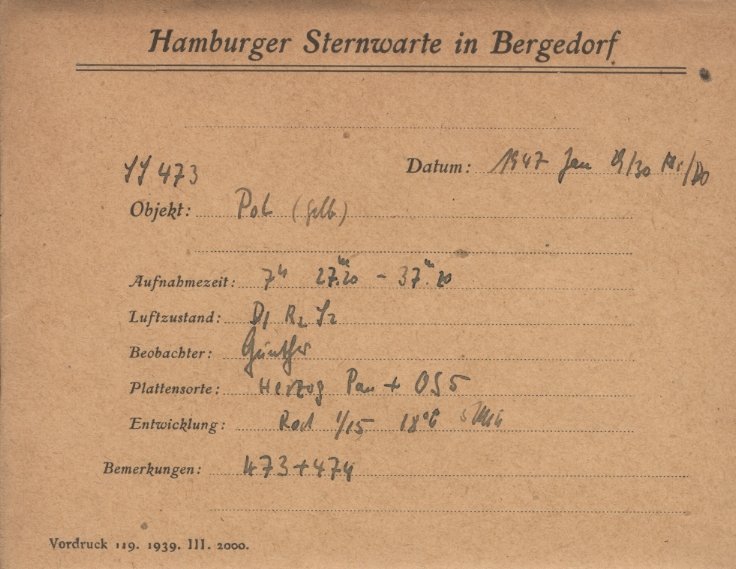 Hamburger Sternwarte in Bergedorf
473 Datum: 1947 Jan 29/30 Mi/Do
Objekt: Pol (gelb)
Aufnahmezeit: 7h 27m.20 - 37m.20
Luftzustand: D1 R2 S2
Beobachter: Günther
Plattensorte: Herzog Pan + OG5
Entwicklung: Rod 1/15 18°C 5 Min
Bemerkungen: 473+474
Vordruck 119. 1939. III. 2000.